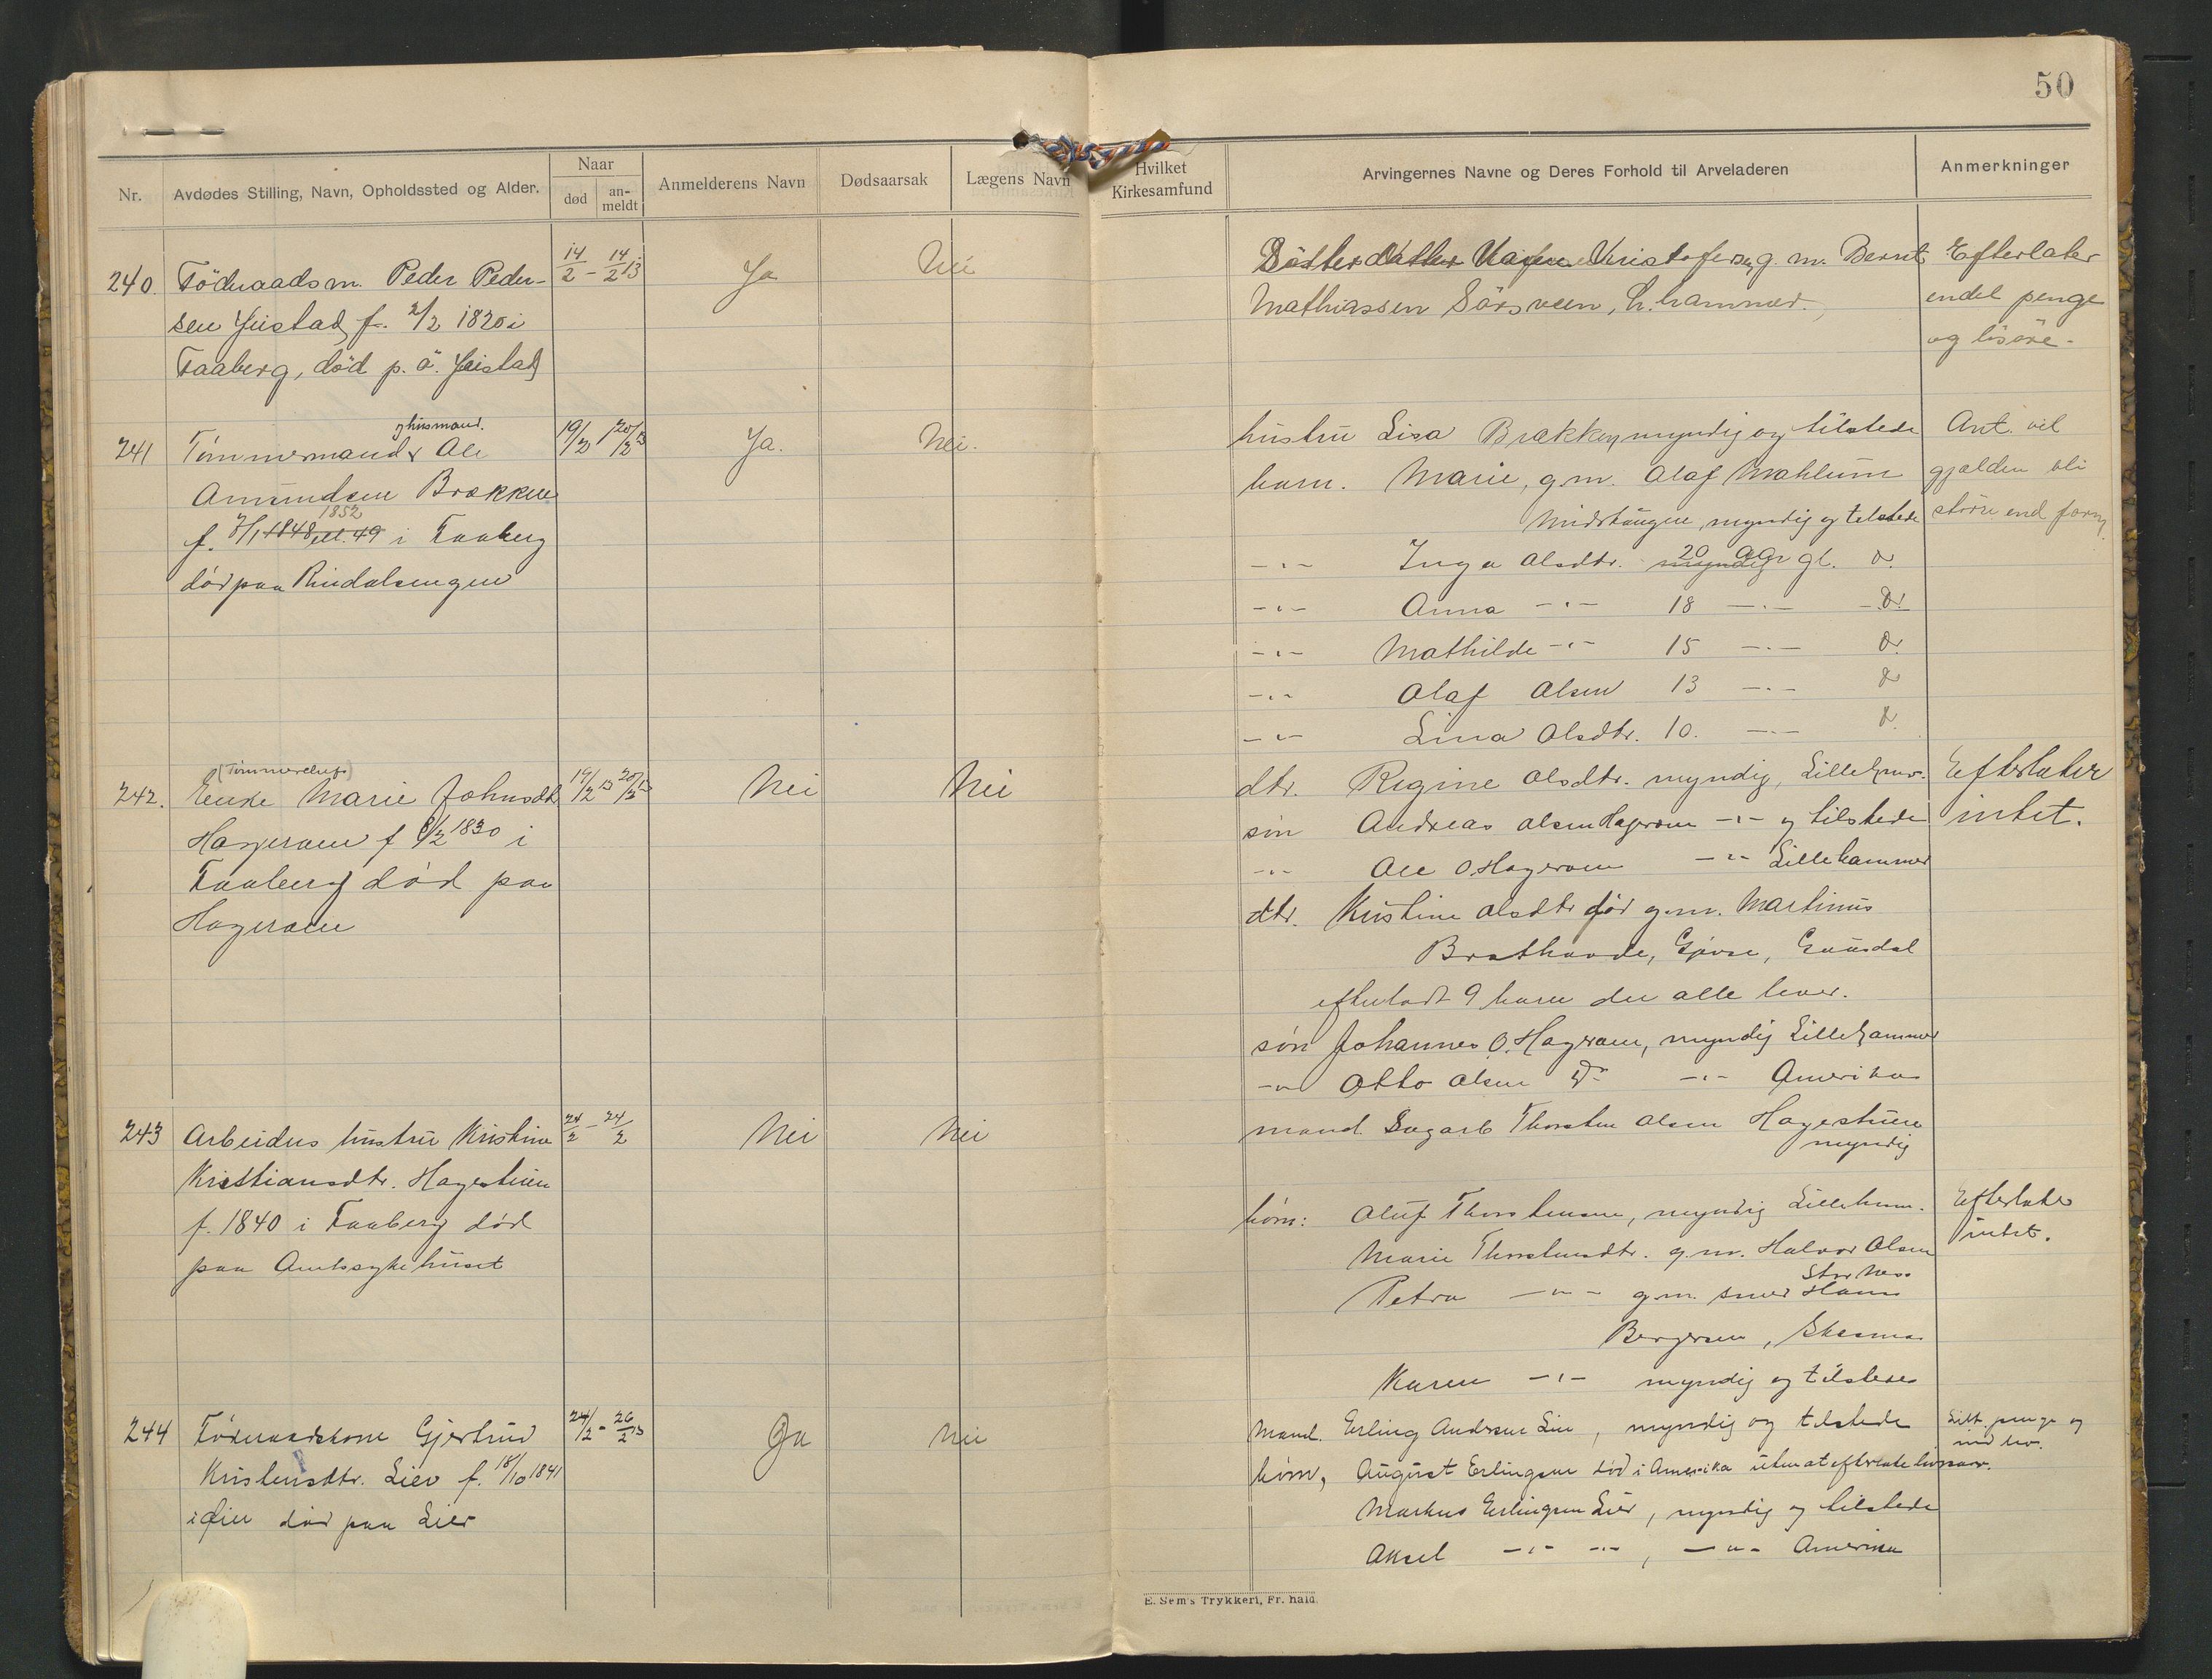 50
Nr.
Avdødes Stilling, Navn, Opholdssted og Alder.
Naar
død
an-
meldt
Anmelderens Navn
Dødsaarsak
Lægens Navn
Hvilket
Kirkesamfund
Arvingernes Navne og Deres Forhold til Arveladeren
Anmerkninger
240. Föderaadsm. Peder Peder- 14/2 - 14/2 13 Ja Nei
sen Jeistad, f. 2/2 1820 i
Faaberg, död p. ö. Jeistad
Datter Kristofersen, g. m. Bernt
Mathiassen Sörsveen, L.hammer.
Efterlater
endel penge
og lösöre.
241 Tømmermand & Ole 19/2 20/2 13 Ja. Nei.
husmand.
Amundsen Brækken
1852
f. 7/1 1848 ell. 49 i Faaberg
død paa Rindalsengen
hustru Lisa Brækken, myndig og tilstede
barn. Marie, g.m. Olaf Mahlum
Midthaugen, myndig og tilstede
-"- Inga Olsdtr. myndig 20 aar gl. do.
-"- Anna -"- 18 -"- do.
-"- Mathilde -"- 15 -"- do.
-"- Olaf Olsen 13 -"- do
-"- Lina Olsdtr. 10. -"- do.
Ant. vil
gjælden bli
større end form.
242. Enke Marie Johnsdtr 19/2 13 20/2 13 Nei Nei
Hageraen f 8/2 1830 i
Faaberg død paa
Hageraen
dtr. Regine Olsdtr. myndig, Lillehmr.
søn Andreas Olsen Hageraen -"- og tilstede
-"- Ole O. Hageraen -"- Lillehammer
dtr. Kristine Olsdtr død g.m. Martinus
Brathaade, Gjøvre, Gausdal
efterladt 9 barn der alle lever.
søn Johannes O. Hageraen, myndig Lillehammer
-"- Otto Olsen Do -"- Amerika
Efterlater
intet.
243 Arbeiders hustru Kristine 24/2 - 24/2 Nei Nei
Kristiansdtr. Hagestuen
f. 1840 i Faaberg død
paa Amtssykehuset
mand. Sagarb Thorsten Olsen Hagestuen
myndig
børn: Oluf Thorstensen, myndig Lilleham.
Marie Thorstensdtr. g.m. Halvor Olsen
Petra -"- g.m. smed Hans
Bergersen,
Karen -"- myndig og tilstede
Efterlater
intet.
244 Føderaadskone Gjertrud 24/2 - 26/2 13 Ja Nei
Kristensdtr. Lier f. 18/10 1841
i Øier død paa Lier
Mand. Erling Andersen Lier, myndig og tilstede
børn, August Erlingsen død i Amerika uten at efterlate livsarv.
Markus Erlingsen Lier, myndig og tilstede
Aksel -"- -"-, -"- Amerika
Litt penge og
E. Sem's Trykkeri, Fr. hald.